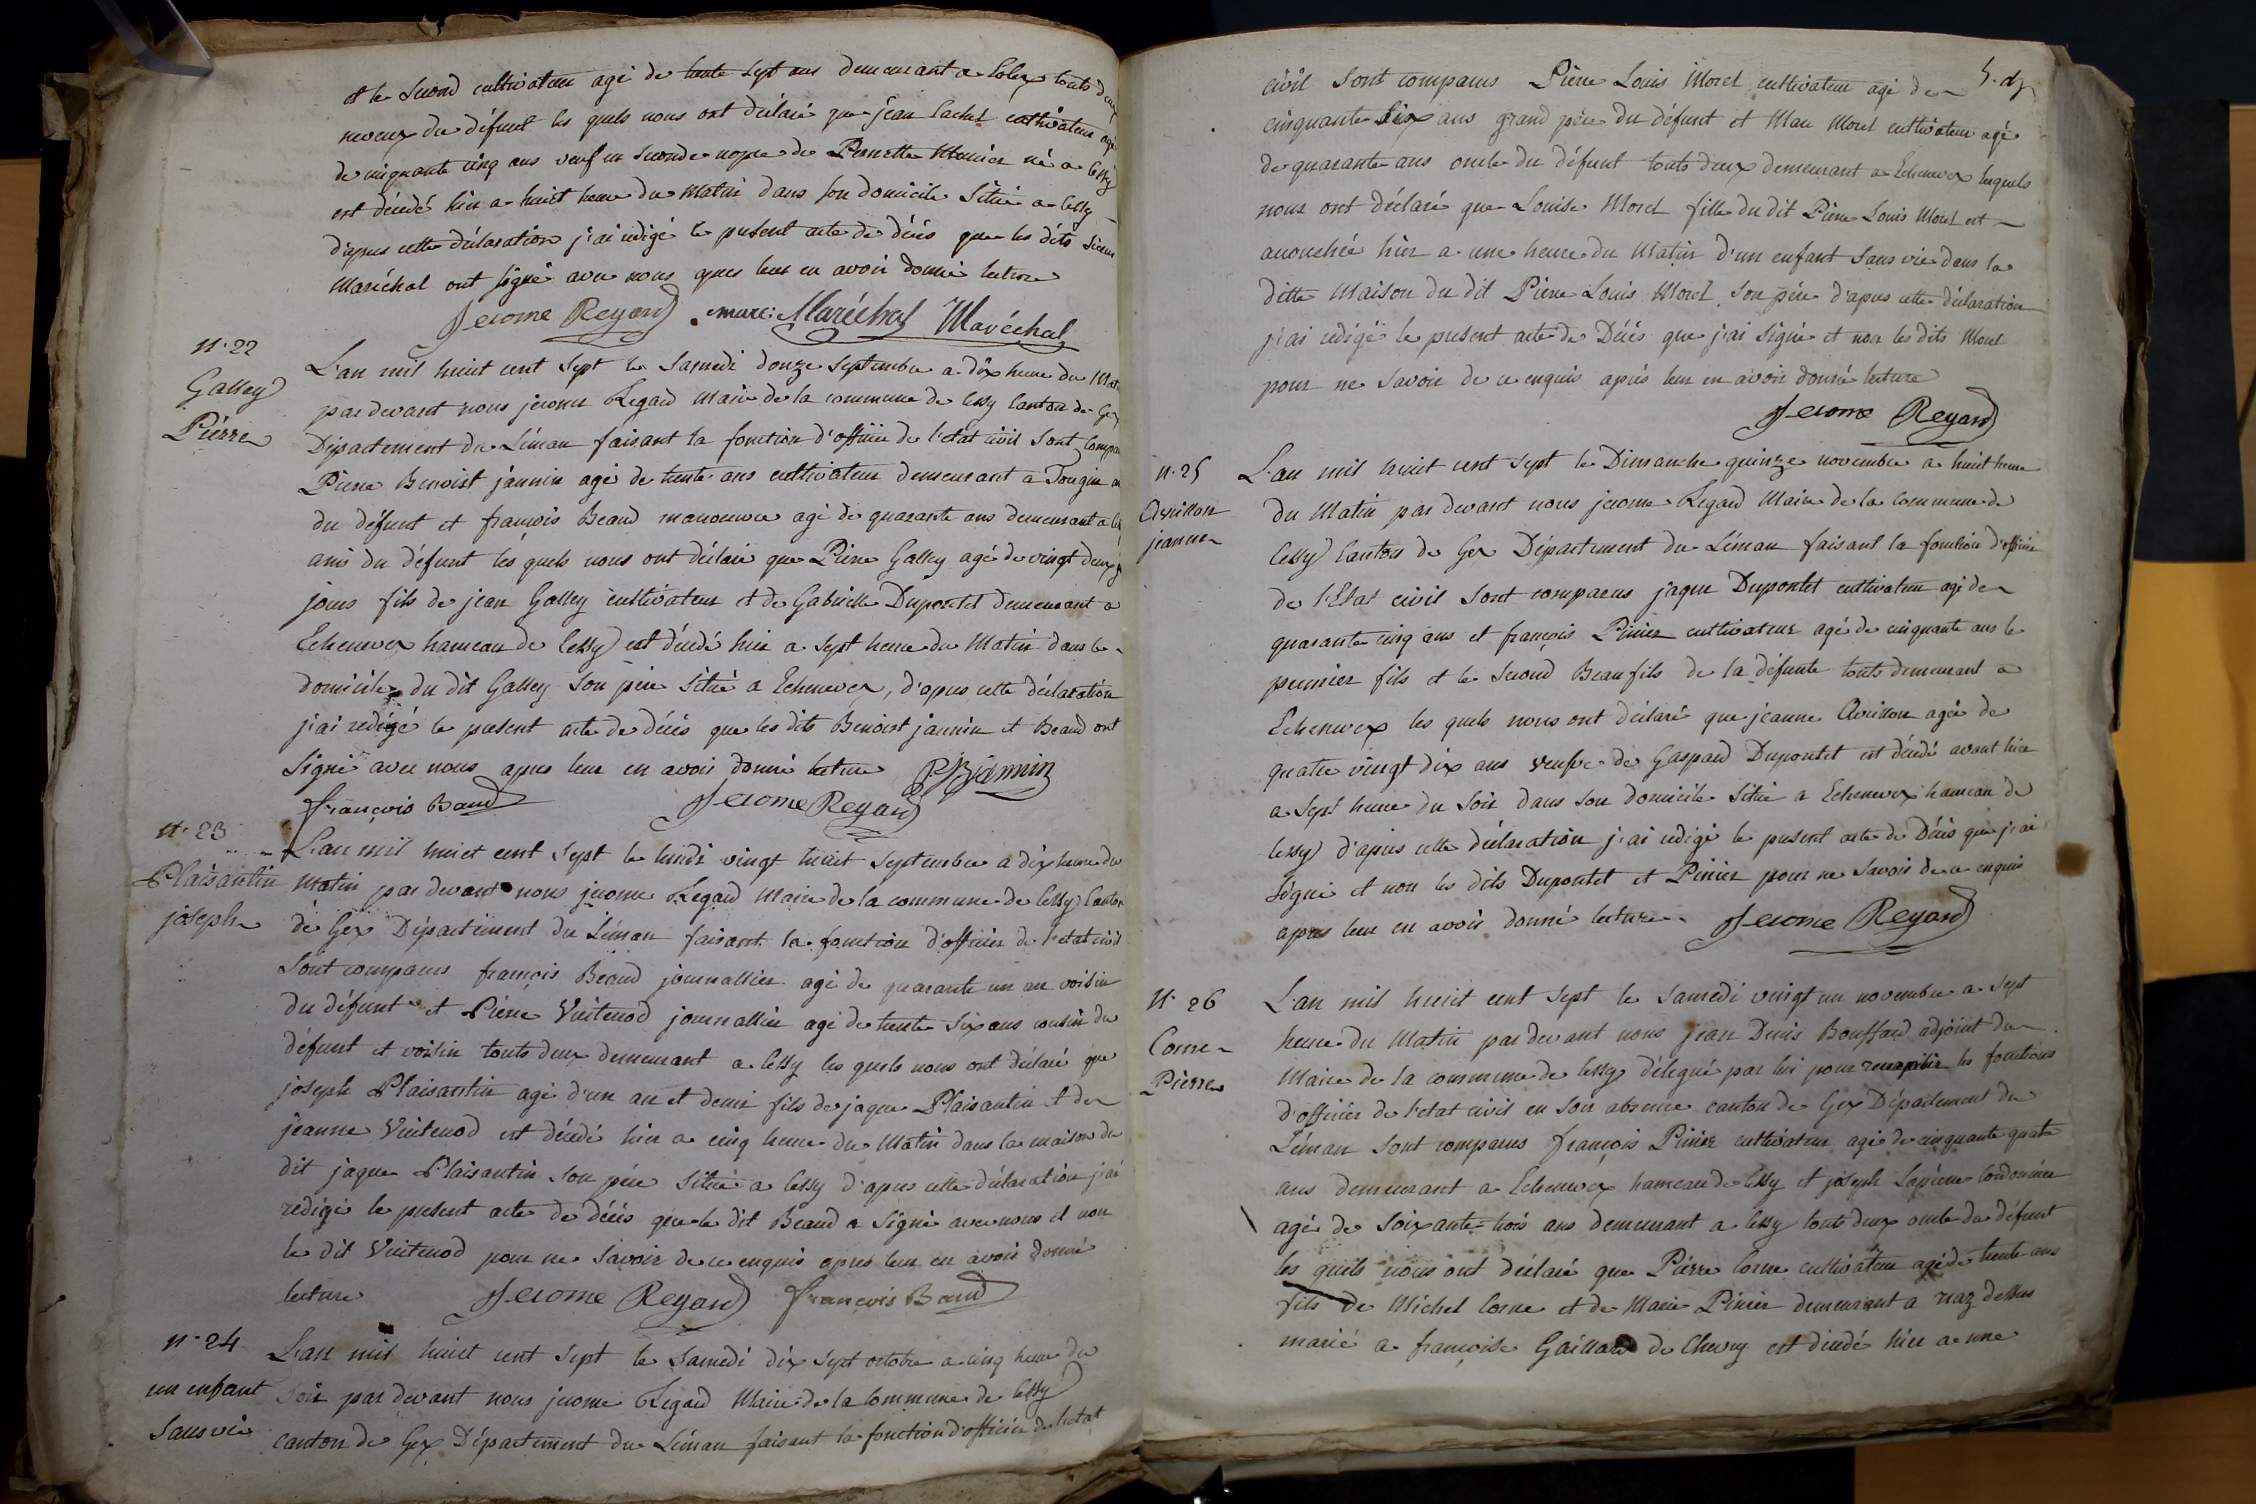 et le second cultivateur agé de trente sept ans demeurant a Colex touts deux
neveux du défunt les quels nous ont déclaré que jean Cachet cultivateur agé
de cinquante cinq ans veuf en seconde nopce de Pernette Munier né a Cessy
est décédé hier a huict heure du matin dans son domicile situé a Cessy
d'apres cette déclaration j'ai redigé le present acte de décés que les dits sieurs
Maréchal ont signé avec nous apres leur en avoir donné lecture
Jerome Regard marc: Maréchal Maréchal
N. 22
Galley
Pierre
L'an mil huict cent sept le samedi douze septembre a dix heure du Matin
par devant nous jerome Regard Maire de la commune de Cessy Canton de Gex
Département du Léman faisant la fonction d'officier de l'etat civil sont compa
Pierre Benoist jannin agé de trente ans cultivateur demeurant a Tougin
du défunt et françois Beaud manoeuvre agé de quarante ans demeurant a
ami du défunt les quels nous ont déclaré que Pierre Galley agé de vingt deux
jours fils de jean Galley cultivateur et de Gabrielle Dupontet demeurant a
Echenevex hameau de Cessy est décédé hier a sept heure du Matin dans le
domicile du dit Galley son pére situé a Echenevex, d'apres cette déclaration
j'ai redigé le present acte de décés que les dits Benoist jannin et Beaud ont
signé avec nous apres leur en avoir donné lecture PBJannin
françois Baud Jerome Regard
N. 23
Plaisantin
joseph
L'an mil huict cent sept le lundi vingt huit septembre a dix heure du
Matin par devant nous jerome Regard Maire de la commune de Cessy Canton
de Gex Département du Léman faisant la fonction d'officier de l'etat civil
sont comparus françois Beaud journallier agé de quarante un an voisin
du défunt et Pierre Vuitenod journallier agé de trente six ans cousin du
défunt et voisin touts deux demeurant a Cessy les quels nous ont déclaré que
joseph Plaisantin agé d'un an et demi fils de jaque Plaisantin et de
jeanne Vuitenod est décédé hier a cinq heure du Matin dans la maison du
dit jaque Plaisantin son pére situé a Cessy d'apres cette déclaration j'ai
redigé le present acte de décés que le dit Beaud a signé avec nous et non
le dit Vuitenod pour ne savoir de ce enquis apres leur en avoir donné
lecture Jerome Regard françois Baud
N. 24
un enfant
sans vie
L'an mil huict cent sept le samedi dix sept octobre a cinq heure du
soir par devant nous jerome Regard Maire de la Commune de Cessy
canton de Gex Département du Léman faisant la fonction d'officier de l'etat
civil sont comparus Pierre Louis Morel cultivateur agé de
cinquante six ans grand pére du défunt et Marc Morel cultivateur agé
de quarante ans oncle du défunt touts deux demeurant a Echenevex lesquels
nous ont déclaré que Louise Morel fille du dit Pierre Louis Morel est
accouchée hier a une heure du Matin d'un enfant sans vie dans la
ditte Maison du dit Pierre Louis Morel son pére d'apres cette déclaration
j'ai redigé le present acte de Décés que j'ai signé et non les dits Morel
pour ne savoir de ce enquis aprés leur en avoir donné lecture
Jerome Regard
N. 25
Avrillon
jeanne
L'an mil huict cent sept le Dimanche quinze novembre a huict heure
du Matin par devant nous jerome Regard Maire de la Commune de
Cessy Canton de Gex Département du Léman faisant la fonction d'officier
de l'Etat civil sont comparus jaque Dupontet cultivateur agé de
quarante cinq ans et françois Pinier cultivateur agé de cinquante ans le
premier fils et le second Beau fils de la défunte touts demeurant a
Echenevex les quels nous ont déclaré que jeanne Avrillon agée de
quatre vingt dix ans veufve de Gaspard Dupontet est décédé avant hier
a sept heure du soir dans son domicile situé a Echenevex hameau de
Cessy d'apres cette déclaration j'ai redigé le present acte de Décés que j'ai
signé et non les dits Dupontet et Pinier pour ne savoir de ce enquis
apres leur en avoir donné lecture. Jerome Regard
N. 26
Corne
Pierre
L'an mil huict cent sept le samedi vingt un novembre a sept
heure du Matin par devant nous jean Denis Bouffard adjoint du
Maire de la commune de Cessy délegué par lui pour remplir les fonctions
d'officier de l'etat civil en son absence canton de Gex Département du
Léman sont comparus françois Pinier cultivateur agé de cinquante quatre
ans demeurant a Echenevex hameau de Cessy et joseph Lapierre Cordonnier
agé de soixante-trois ans demeurant a Cessy touts deux oncle du défunt
les quels nous ont déclaré que Pierre Corne cultivateur agé de trente ans
fils de Michel Corne et de Marie Pinier demeurant a Naz dessus
marié a françoise Gaillard de Chevry est décédé hier a une